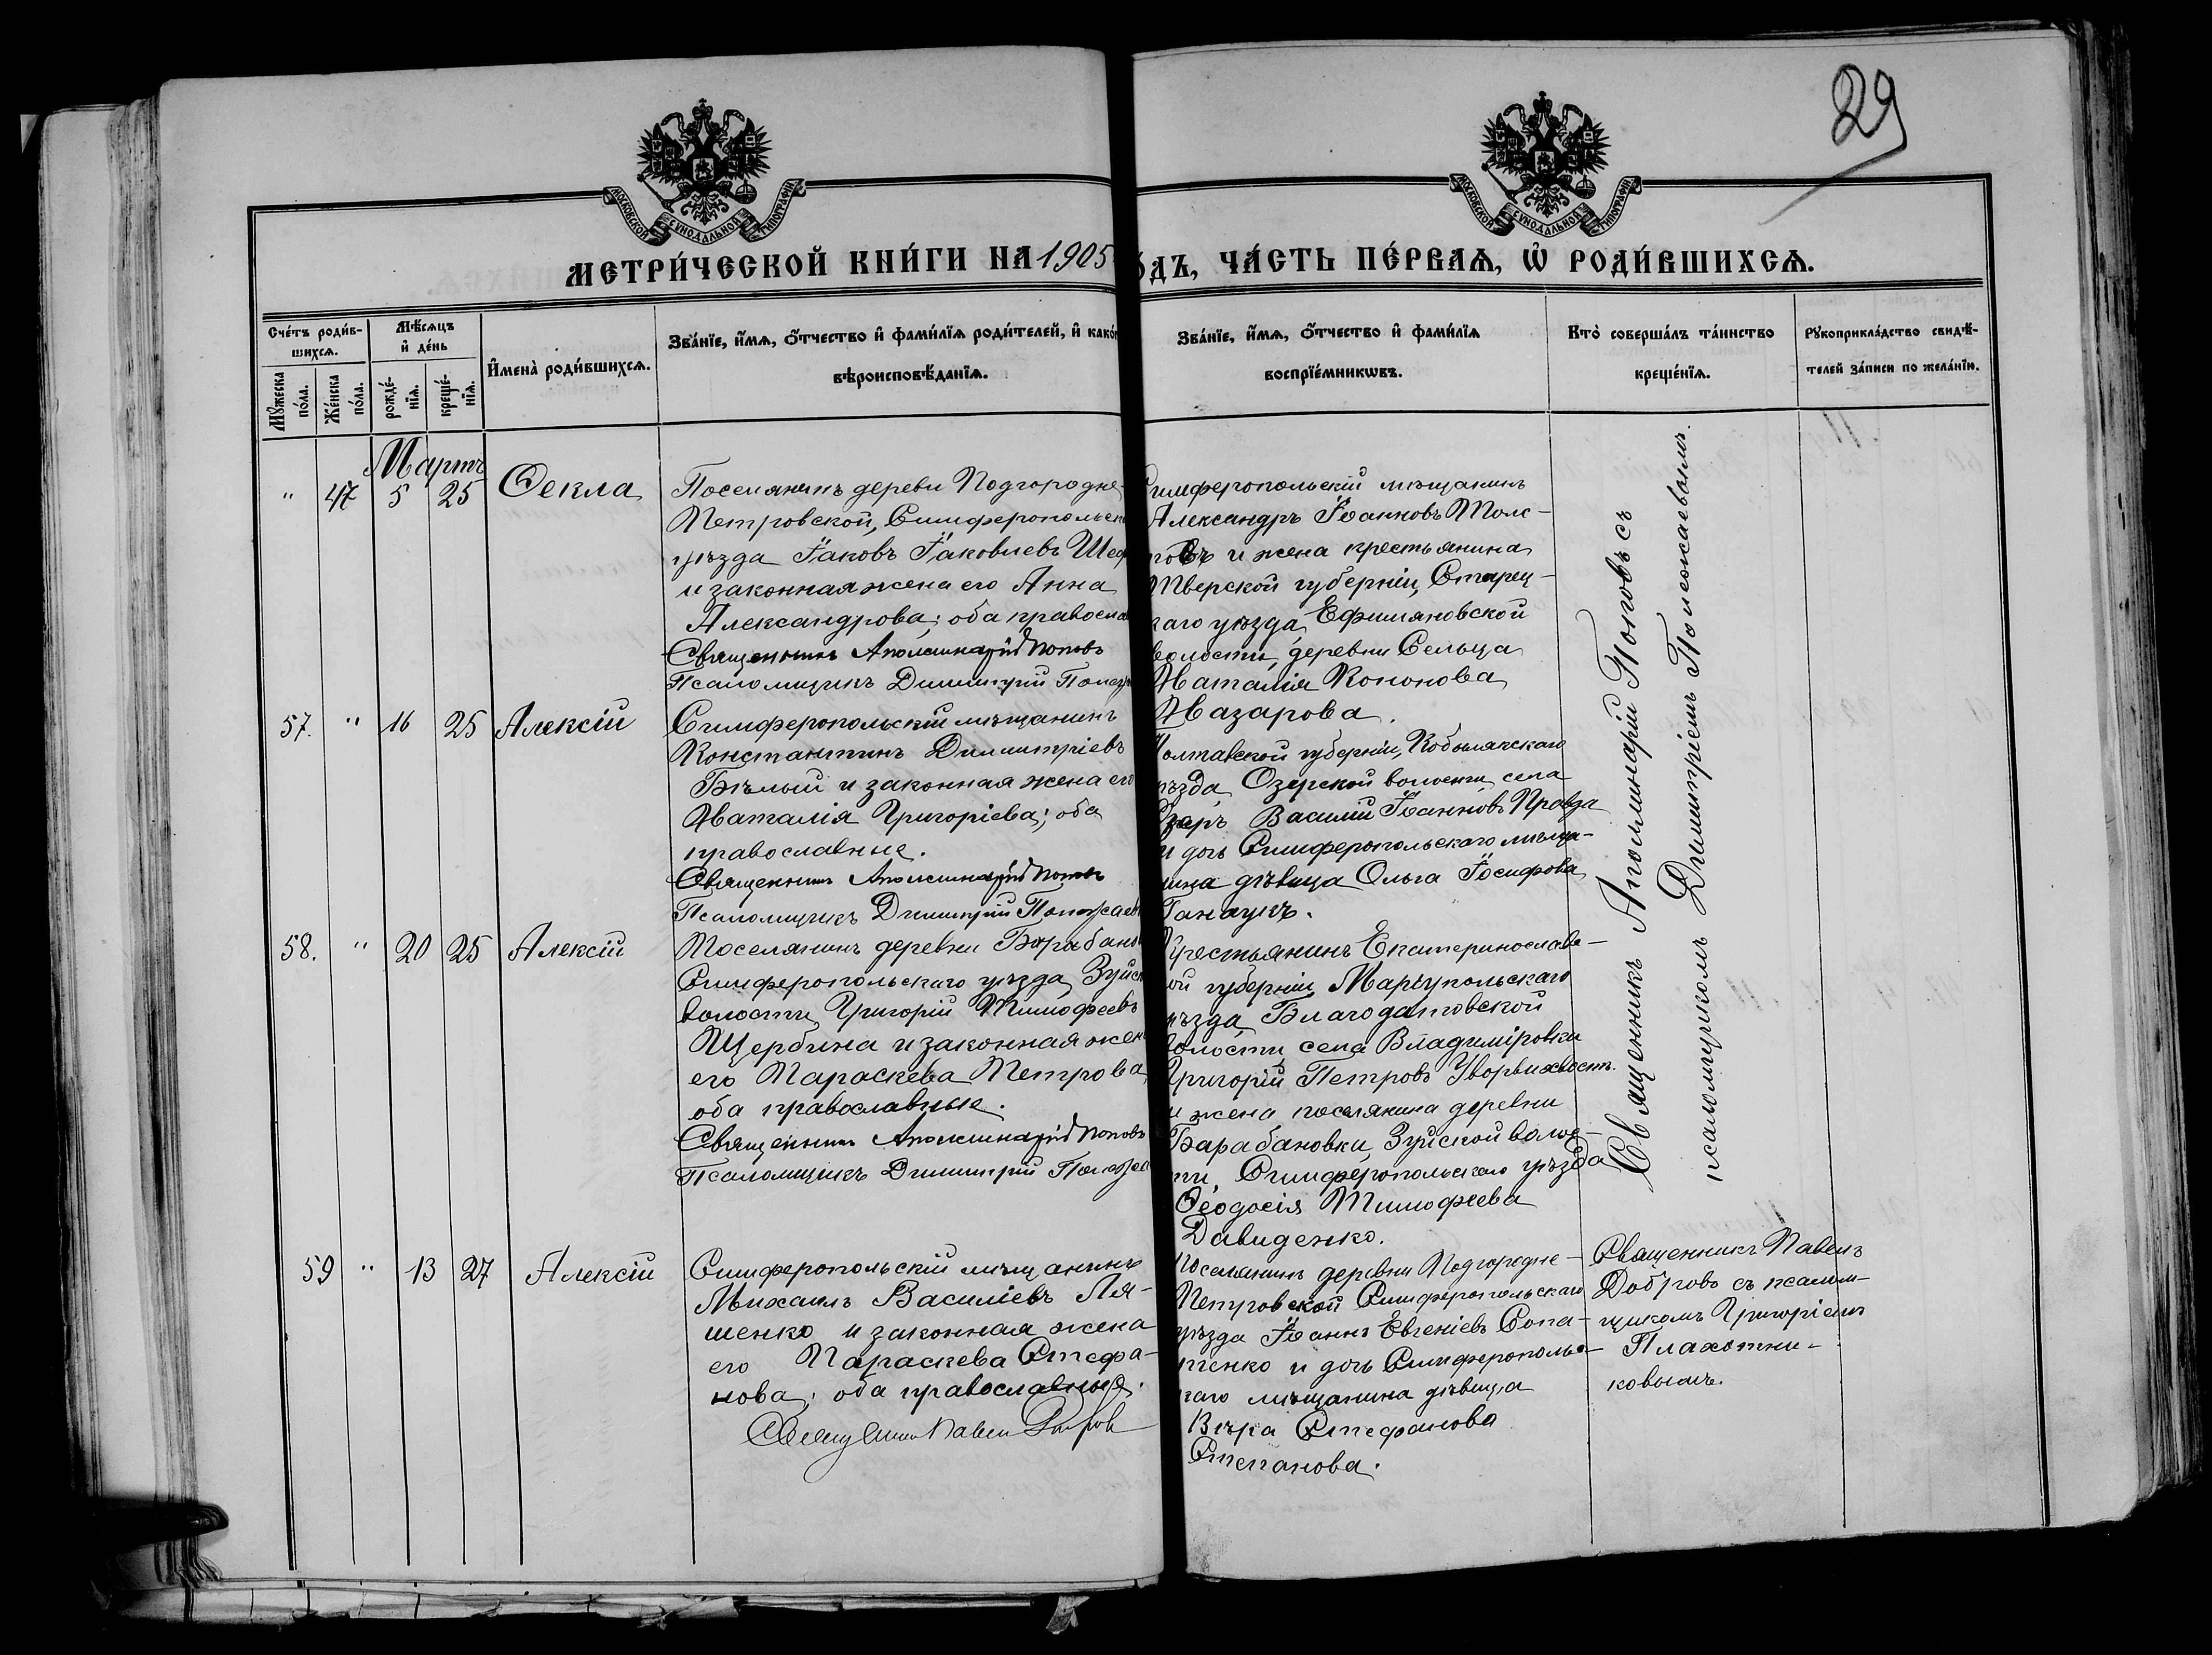 29
МОСКОВСКОЙ СѴНОДАЛЬНОЙ ТИПОГРАФІИ
МОСКОВСКОЙ СѴНОДАЛЬНОЙ ТИПОГРАФІИ
МЕТРИ́ЧЕСКОЙ КНИ́ГИ НА 1905
ДЪ, ЧА́СТЬ ПЕ́РВАѦ, Ѡ҆ РОДИ́ВШИХСѦ.
Сче́тъ роди́в-
шихсѧ.
Мꙋ́жеска
по́ла.
Же́нска
по́ла.
Мѣ́сѧцъ
и҆ де́нь
рожде́-
нїѧ.
креще́-
нїѧ.
И҆мена̀ роди́вшихсѧ.
Зва́нїе, и҆́мѧ, ѻ҆́тчество и҆ фами́лїѧ роди́телей, и҆ како́
вѣроисповѣ́данїѧ.
Зва́нїе, и҆́мѧ, ѻ҆́тчество и҆ фами́лїѧ
воспрїе́мникѡвъ.
Кто̀ соверша́лъ та́инство
креще́нїѧ.
Рꙋкоприкла́дство свидѣ́-
телей за́писи по жела́нїю.
Мартъ
" 47 5 25 Ѳекла
Поселянинъ деревн Подгородне-
Петровской, Симферопольск
уѣзда Іаковъ Іаковлевъ Ше
и законная жена его Анна
Александрова; оба правосла
Священникъ Аполлинарій Поповъ
Псаломщикъ Димитрій Пол
имферопольскій мѣщанинъ
Александръ Іоанновъ Толс-
товъ и жена крестьянина
Тверской губерніи, Старец-
каго уѣзда, Ефимяновской
волости, деревни Сельца
Наталія Кононова
Назарова.
57. " 16 25 Алексій
Симферопольскій мѣщанинъ
Константинъ Димитріевъ
Бѣлый и законная жена его
Наталія Григоріева; оба
православные.
Священникъ Аполлинарій Поповъ
Псаломщикъ Димитрій Полежаев
олтавской губерніи, Кобелякскаго
ѣзда, Озерской волости, села
Озеръ Василій Іоанновъ Правда
и дочь Симферопольскаго мѣща-
нина дѣвица Ольга Іосифова
58. " 20 25 Алексій
Поселянинъ деревни Барабано
Симферопольскаго уѣзда, Зуйск
волости, Григорій Тимофеевъ
Щербина и законная жен
его Параскева Петрова,
оба православные.
Священникъ Аполлинарій Поповъ
Псаломщикъ Димитрій Полежа
Крестьянинъ Екатеринослав-
ой губерніи, Маріупольскаго
ѣзда, Благодатовской
волости, села Владиміровки
Григорій Петровъ Уворвихвостъ.
и жена поселянина деревни
Барабановки, Зуйской волос-
ти, Симферопольскаго уѣзда
Ѳеодосія Тимофеева
Давиденко.
Священникъ Аполлинарій Поповъ съ
псаломщикомъ Димитріемъ Полежаевымъ.
59 " 13 27 Алексій
Симферопольскій мѣщанинъ
Михаилъ Василіевъ Ля-
шенко и законная жена
его Параскева Стефа-
нова; оба православные.
Священникъ Павелъ Добров
Поселянинъ деревни Подгородне-
Петровской Симферопольскаго
уѣзда Іоаннъ Евгеніевъ Сопа-
тенко и дочь Симферополь-
каго мѣщанина дѣвица
Вѣра Стефанова
Степанова.
Священникъ Павелъ
Добровъ съ псалом-
щикомъ Григоріемъ
Плахотни-
ковымъ.